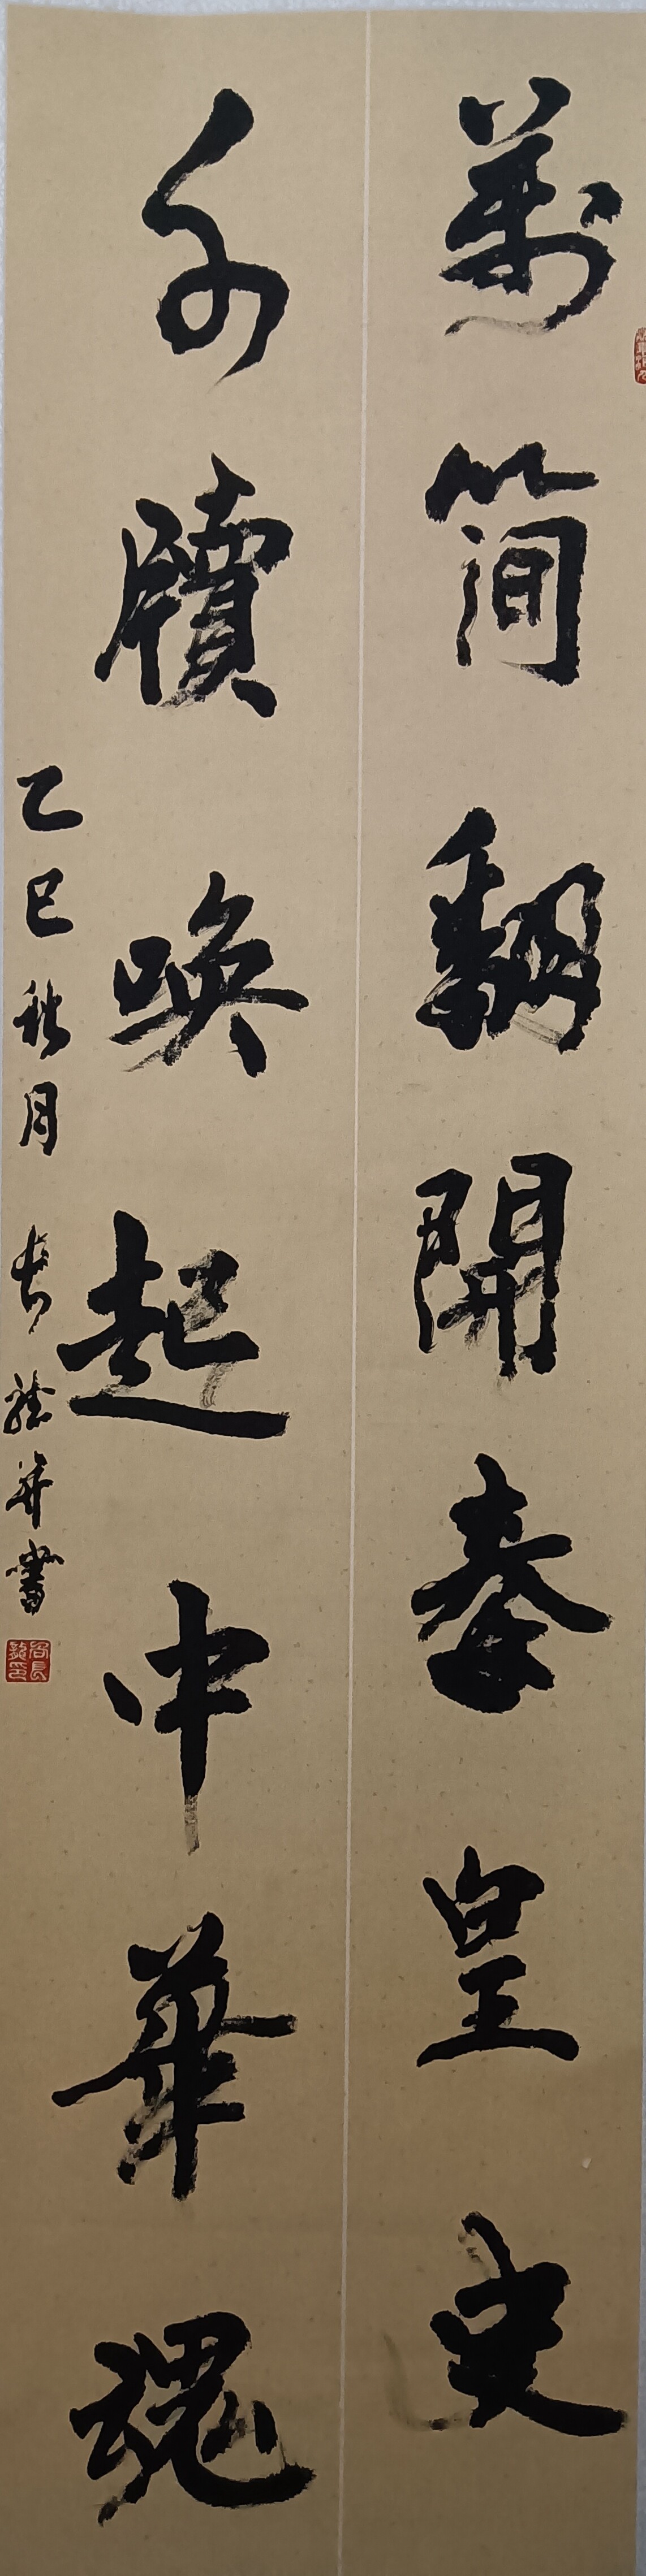 萬简翻開秦皇史
千牘喚起中華魂
乙巳秋月 長龍并書